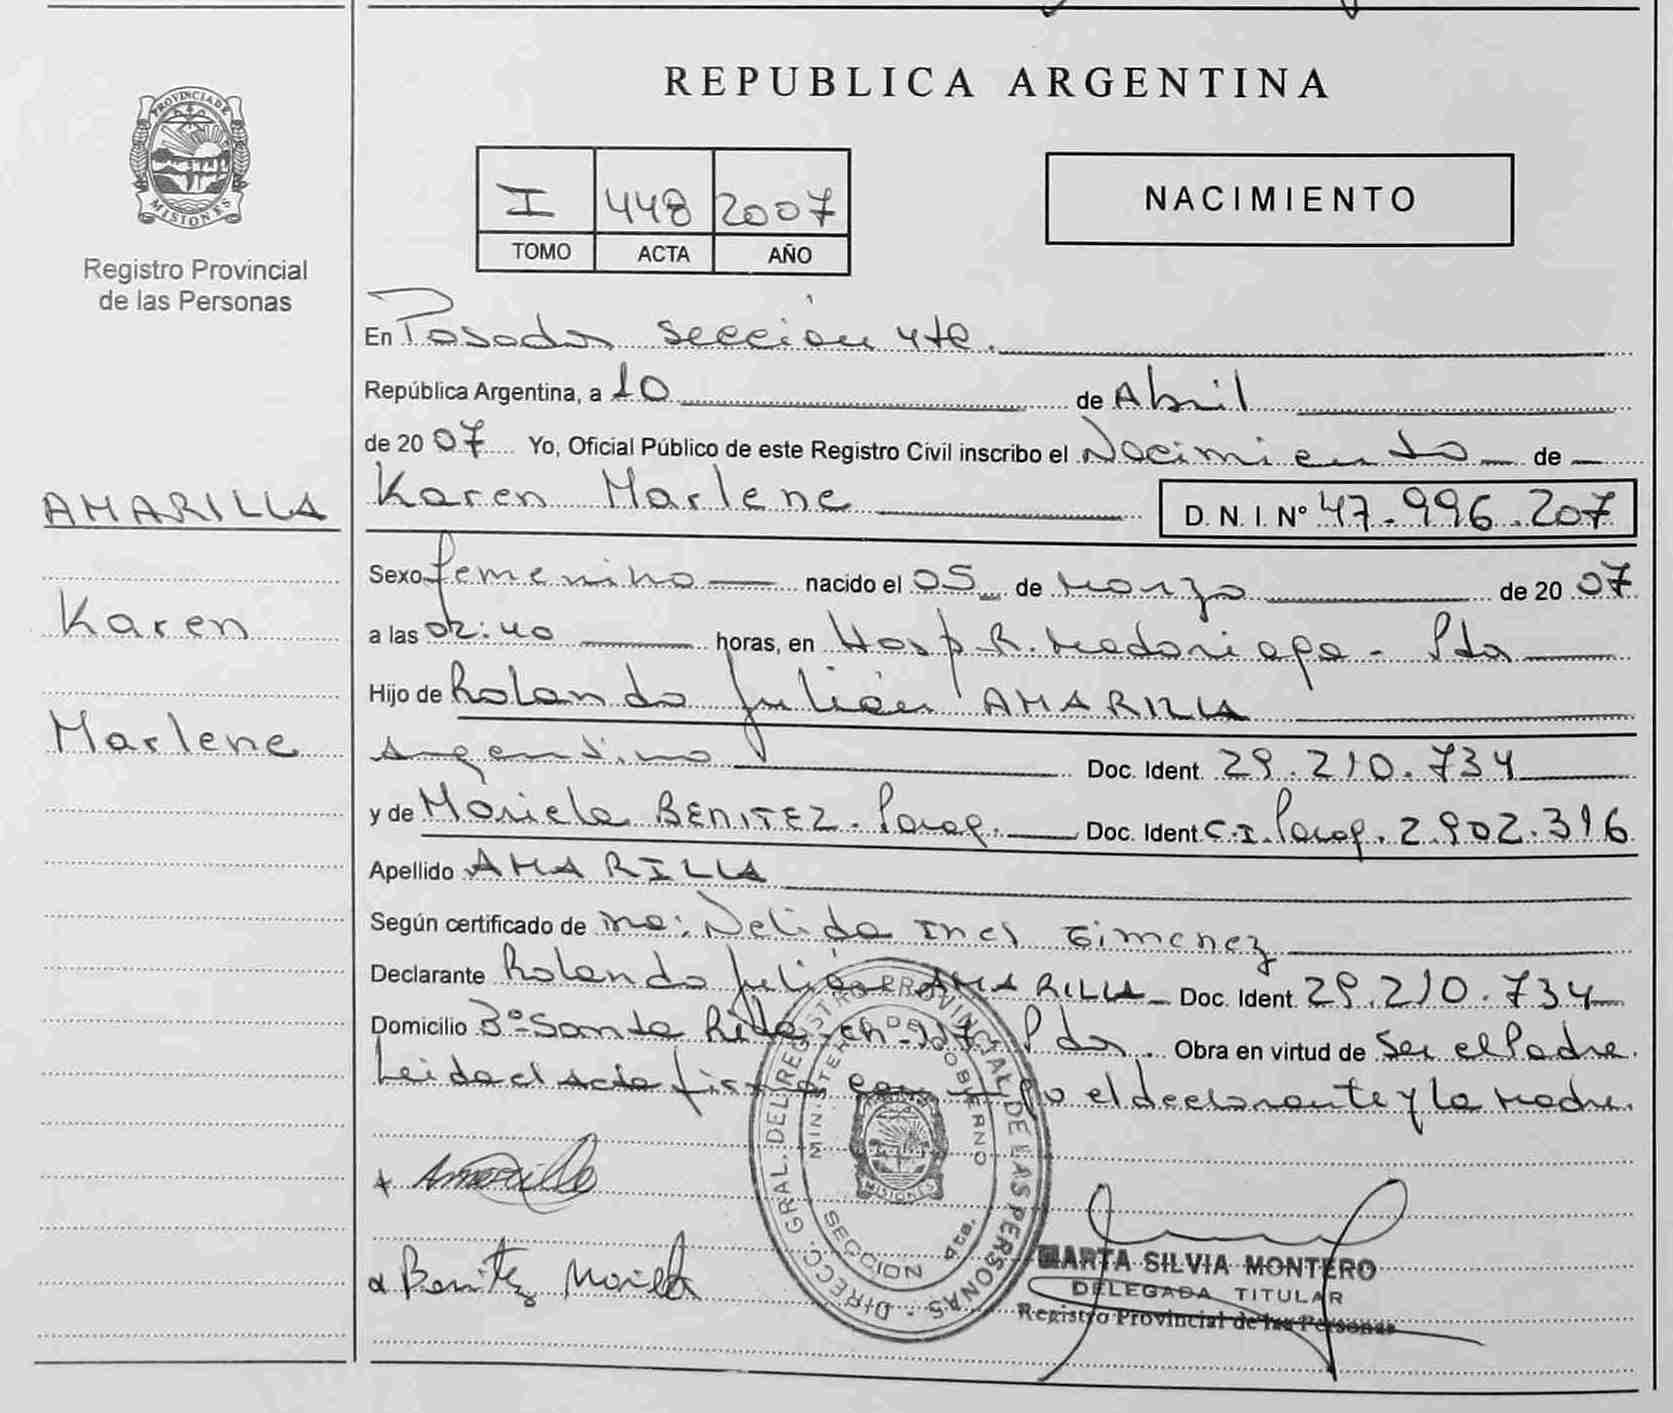 REPUBLICA ARGENTINA
PROVINCIA DE
MISIONES
Registro Provincial
de las Personas
I 448 2007
TOMO ACTA AÑO
NACIMIENTO
En Posadas sección 4ta.
República Argentina, a 10 de Abril
de 2007 Yo, Oficial Público de este Registro Civil inscribo el Nacimiento de
Karen Marlene D. N. I. Nº 47.996.207
AMARILLA
Karen
Marlene
Sexo femenino nacido el 05 de Marzo de 2007
a las 02:40 horas, en Hosp. R. Madariaga - Pdas
Hijo de Rolando Julián AMARILLA
argentino Doc. Ident. 29.210.734
y de Mariela BENITEZ. Parag. Doc. Ident. C.I. Parag. 2.902.316
Apellido AMARILLA
Según certificado de Nelida Ines Gimenez
Declarante Rolando Julián AMARILLA Doc. Ident. 29.210.734
Domicilio Bº Santa Rita ch. 127 Pdas. Obra en virtud de Ser el Padre.
Leida el acta firma conmigo el declarante y la madre.
Amarilla
Benitez Mariela
DIRECC. GRAL. DEL REGISTRO PROVINCIAL DE LAS PERSONAS
MINISTERIO DE GOBIERNO
SECCION 4ta.
MISIONES
MARTA SILVIA MONTERO
DELEGADA TITULAR
Registro Provincial de las Personas